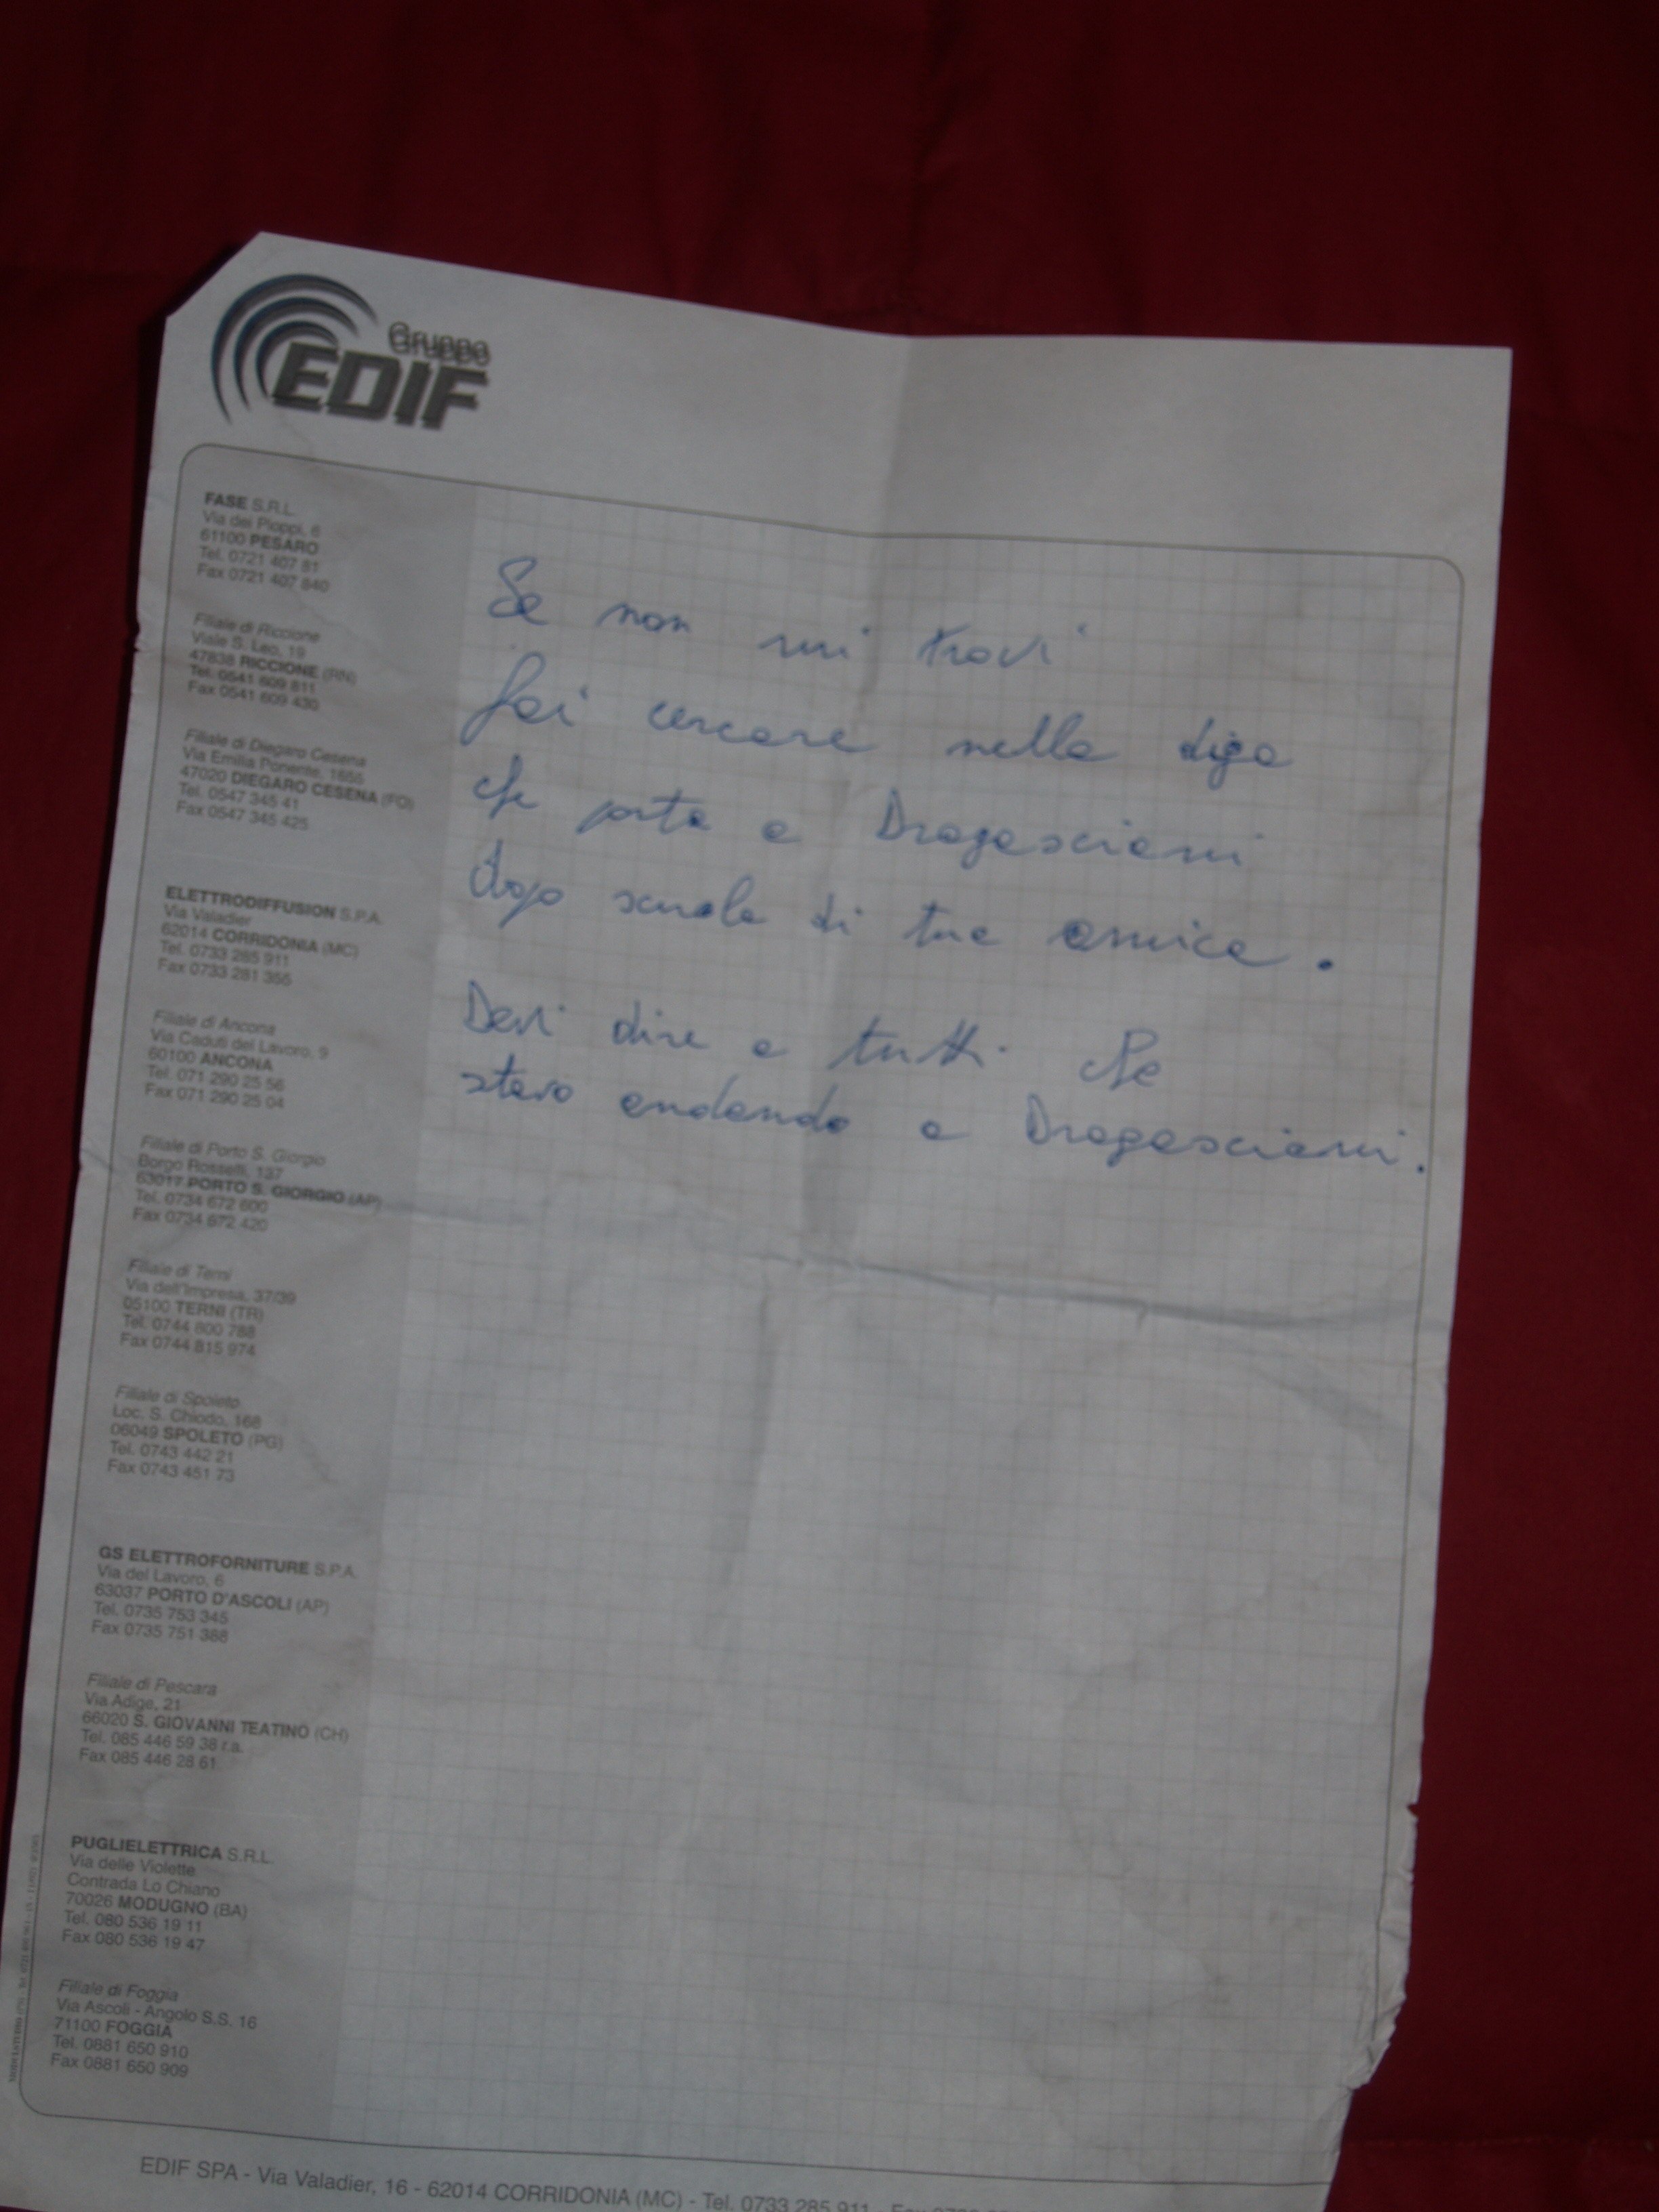 Gruppo
EDIF
FASE S.R.L.
Via dei Pioppi, 6
61100 PESARO
Tel. 0721 407 81
Fax 0721 407 840
Filiale di Riccione
Viale S. Leo, 19
47838 RICCIONE (RN)
Tel. 0541 609 811
Fax 0541 609 430
Filiale di Diegaro Cesena
Via Emilia Ponente, 1655
47020 DIEGARO CESENA (FO)
Tel. 0547 345 41
Fax 0547 345 425
ELETTRODIFFUSION S.P.A.
Via Valadier
62014 CORRIDONIA (MC)
Tel. 0733 285 911
Fax 0733 281 355
Filiale di Ancona
Via Caduti del Lavoro, 9
60100 ANCONA
Tel. 071 290 25 56
Fax 071 290 25 04
Filiale di Porto S. Giorgio
Borgo Rosselli, 137
63017 PORTO S. GIORGIO (AP)
Tel. 0734 672 600
Fax 0734 672 420
Filiale di Terni
Via dell'Impresa, 37/39
05100 TERNI (TR)
Tel. 0744 800 788
Fax 0744 815 974
Filiale di Spoleto
Loc. S. Chiodo, 168
06049 SPOLETO (PG)
Tel. 0743 442 21
Fax 0743 451 73
GS ELETTROFORNITURE S.P.A.
Via del Lavoro, 6
63037 PORTO D'ASCOLI (AP)
Tel. 0735 753 345
Fax 0735 751 388
Filiale di Pescara
Via Adige, 21
66020 S. GIOVANNI TEATINO (CH)
Tel. 085 446 59 38 r.a.
Fax 085 446 28 61
PUGLIELETTRICA S.R.L.
Via delle Violette
Contrada Lo Chiano
70026 MODUGNO (BA)
Tel. 080 536 19 11
Fax 080 536 19 47
Filiale di Foggia
Via Ascoli - Angolo S.S. 16
71100 FOGGIA
Tel. 0881 650 910
Fax 0881 650 909
Se non mi trovi
fai cercare nella diga
che porta a Dragasciami
dopo scuola di tua amica.
Devi dire a tutti che
stavo andando a Dragasciami.
EDIF SPA - Via Valadier, 16 - 62014 CORRIDONIA (MC) - Tel. 0733 285 911 - Fax